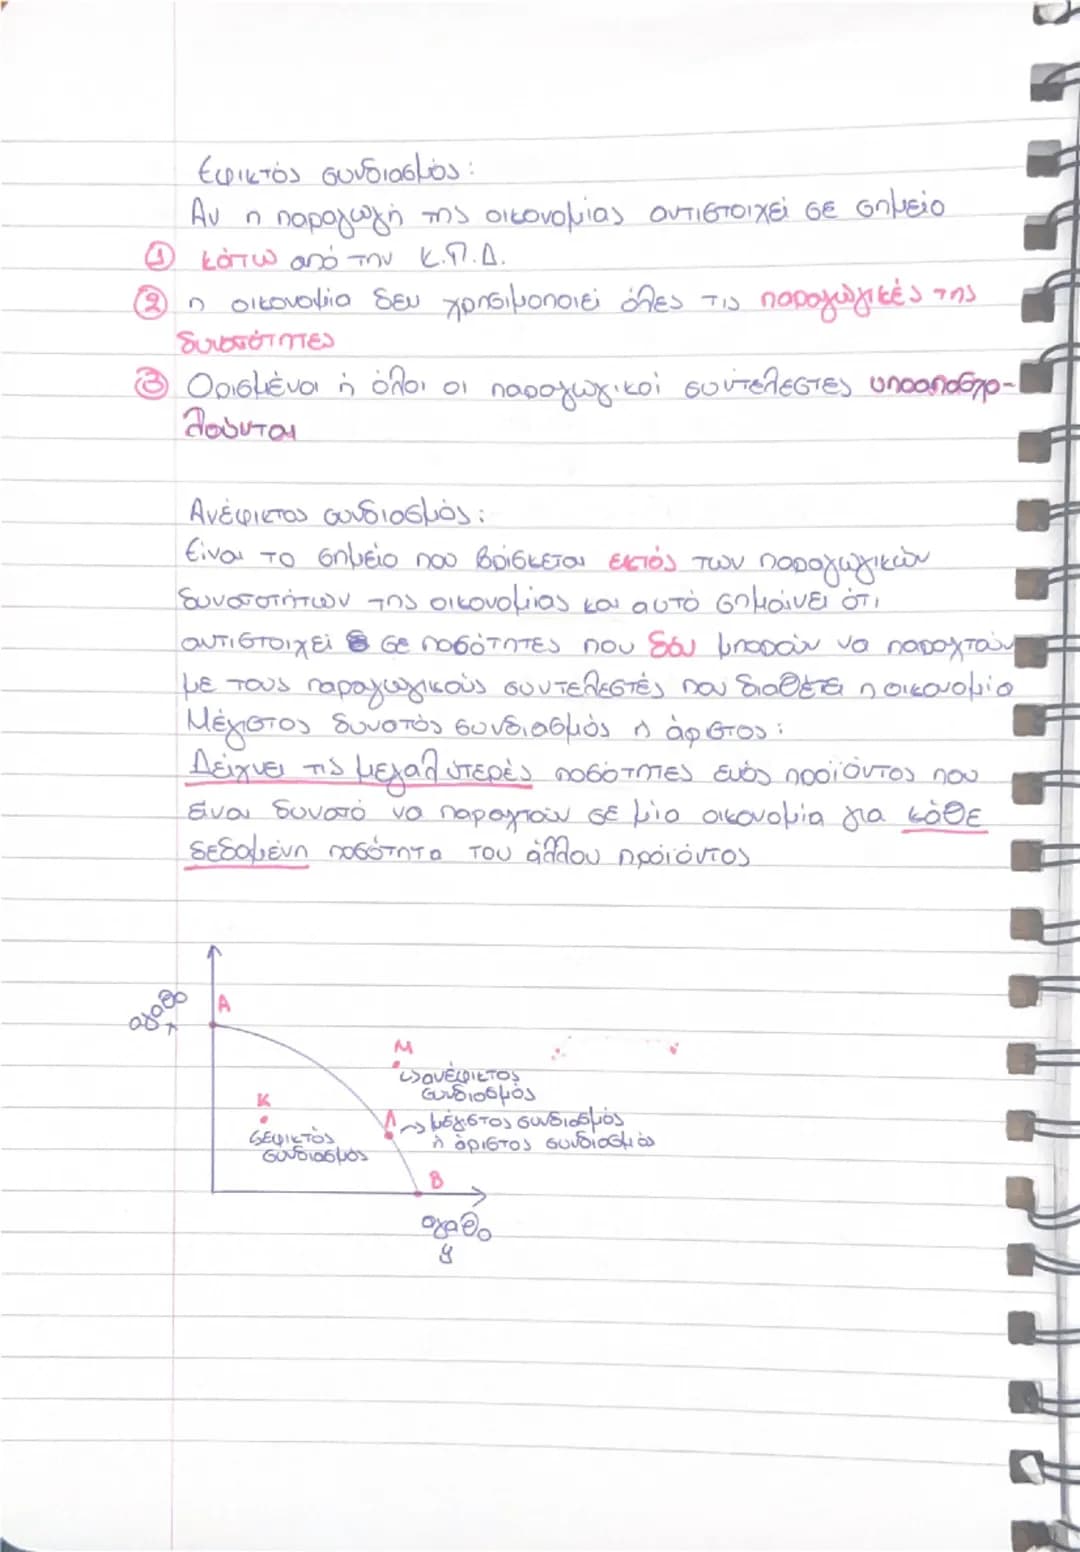 Εφικτός συνδιασμός:
Αν η παραγωγή της οικονομίας αντιστοιχεί σε σημείο
① κάτω από την Κ.Π.Δ.
② η οικονομία δεν χρησιμοποιεί όλες τις παραγωγικές της
δυνατότητες
③ Ορισμένοι ή όλοι οι παραγωγικοί συντελεστές υποαπασχο-
λούνται
Ανέφικτος συνδιασμός:
Είναι το σημείο που βρίσκεται εκτός των παραγωγικών
δυνατοτήτων της οικονομίας και αυτό σημαίνει ότι
αντιστοιχεί σε ποσότητες που δεν μπορούν να παραχτούν
με τους παραγωγικούς συντελεστές που διαθέτει η οικονομία
Μέγιστος δυνατός συνδιασμός ή άριστος:
Δείχνει τις μεγαλύτερές ποσότητες ενός προϊόντος που
είναι δυνατό να παραχτούν σε μία οικονομία για κάθε
δεδομένη ποσότητα του άλλου προϊόντος
αγαθο
χ
Α
Μ
↳ανέφικτος
συνδιασμός
Κ
↳εφικτός
συνδιασμός
Λ
→ μέγιστος συνδιασμός
ή άριστος συνδιασμός
Β
αγαθο
y